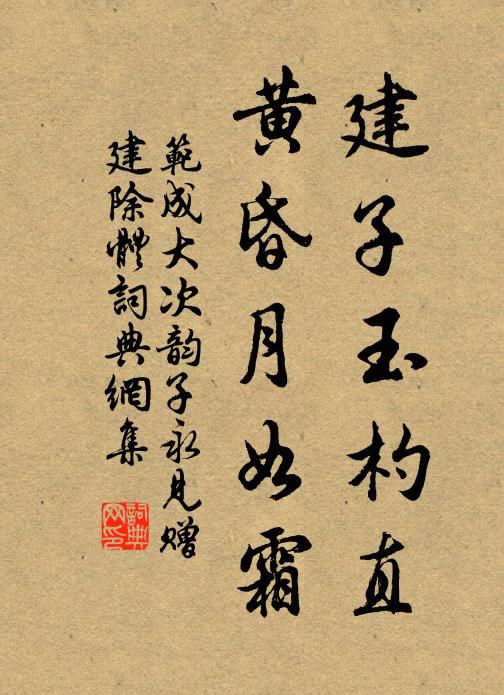 建子玉杓直
黄昏月如霜
範成大次韵子永見赠
建除體詞典網集
詞典網印